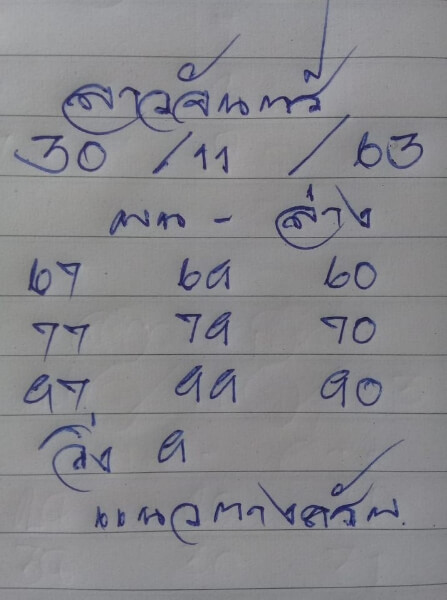 ลาวจันทร์
30 /11 / 63
บน - ล่าง
67 69 60
77 79 70
97 99 90
วิ่ง 9
แนวทางครับ.